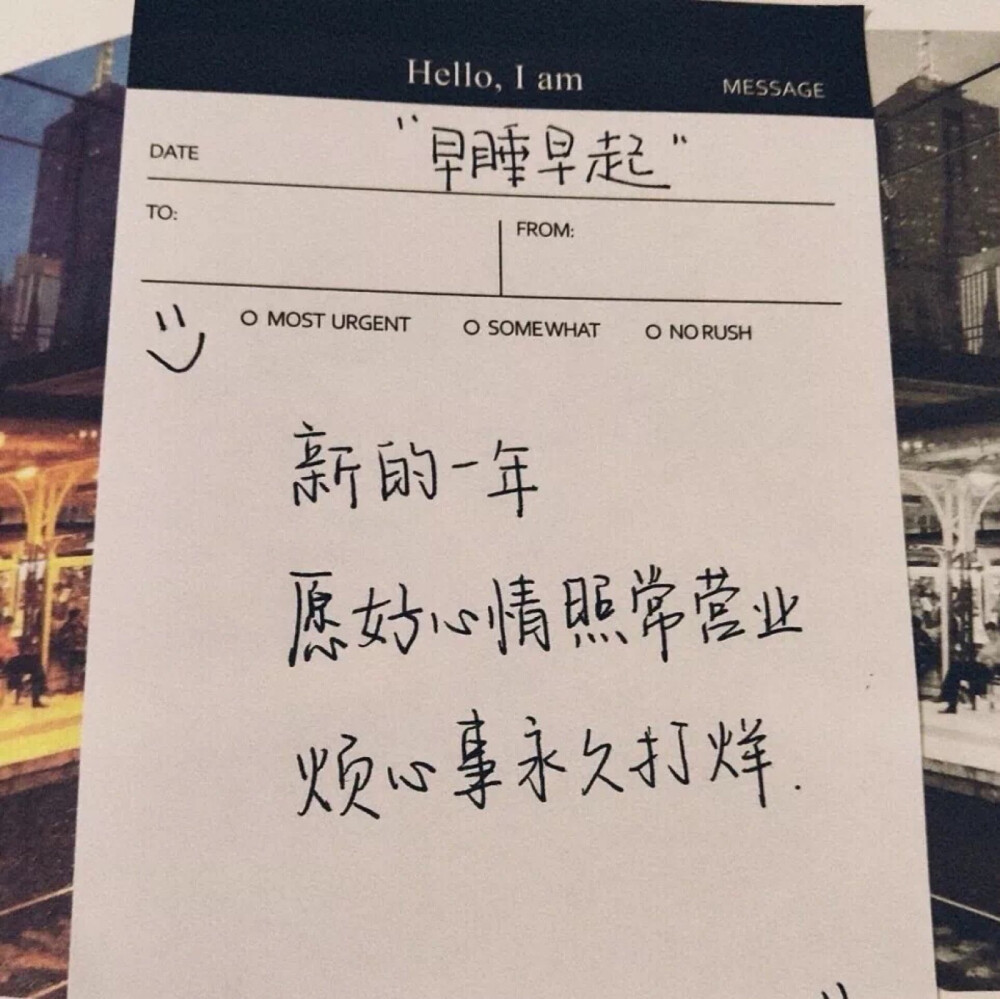 Hello, I am
MESSAGE
DATE
"早睡早起"
TO:
FROM:
O MOST URGENT O SOMEWHAT O NO RUSH
新的一年
愿好心情照常营业
烦心事永久打烊.